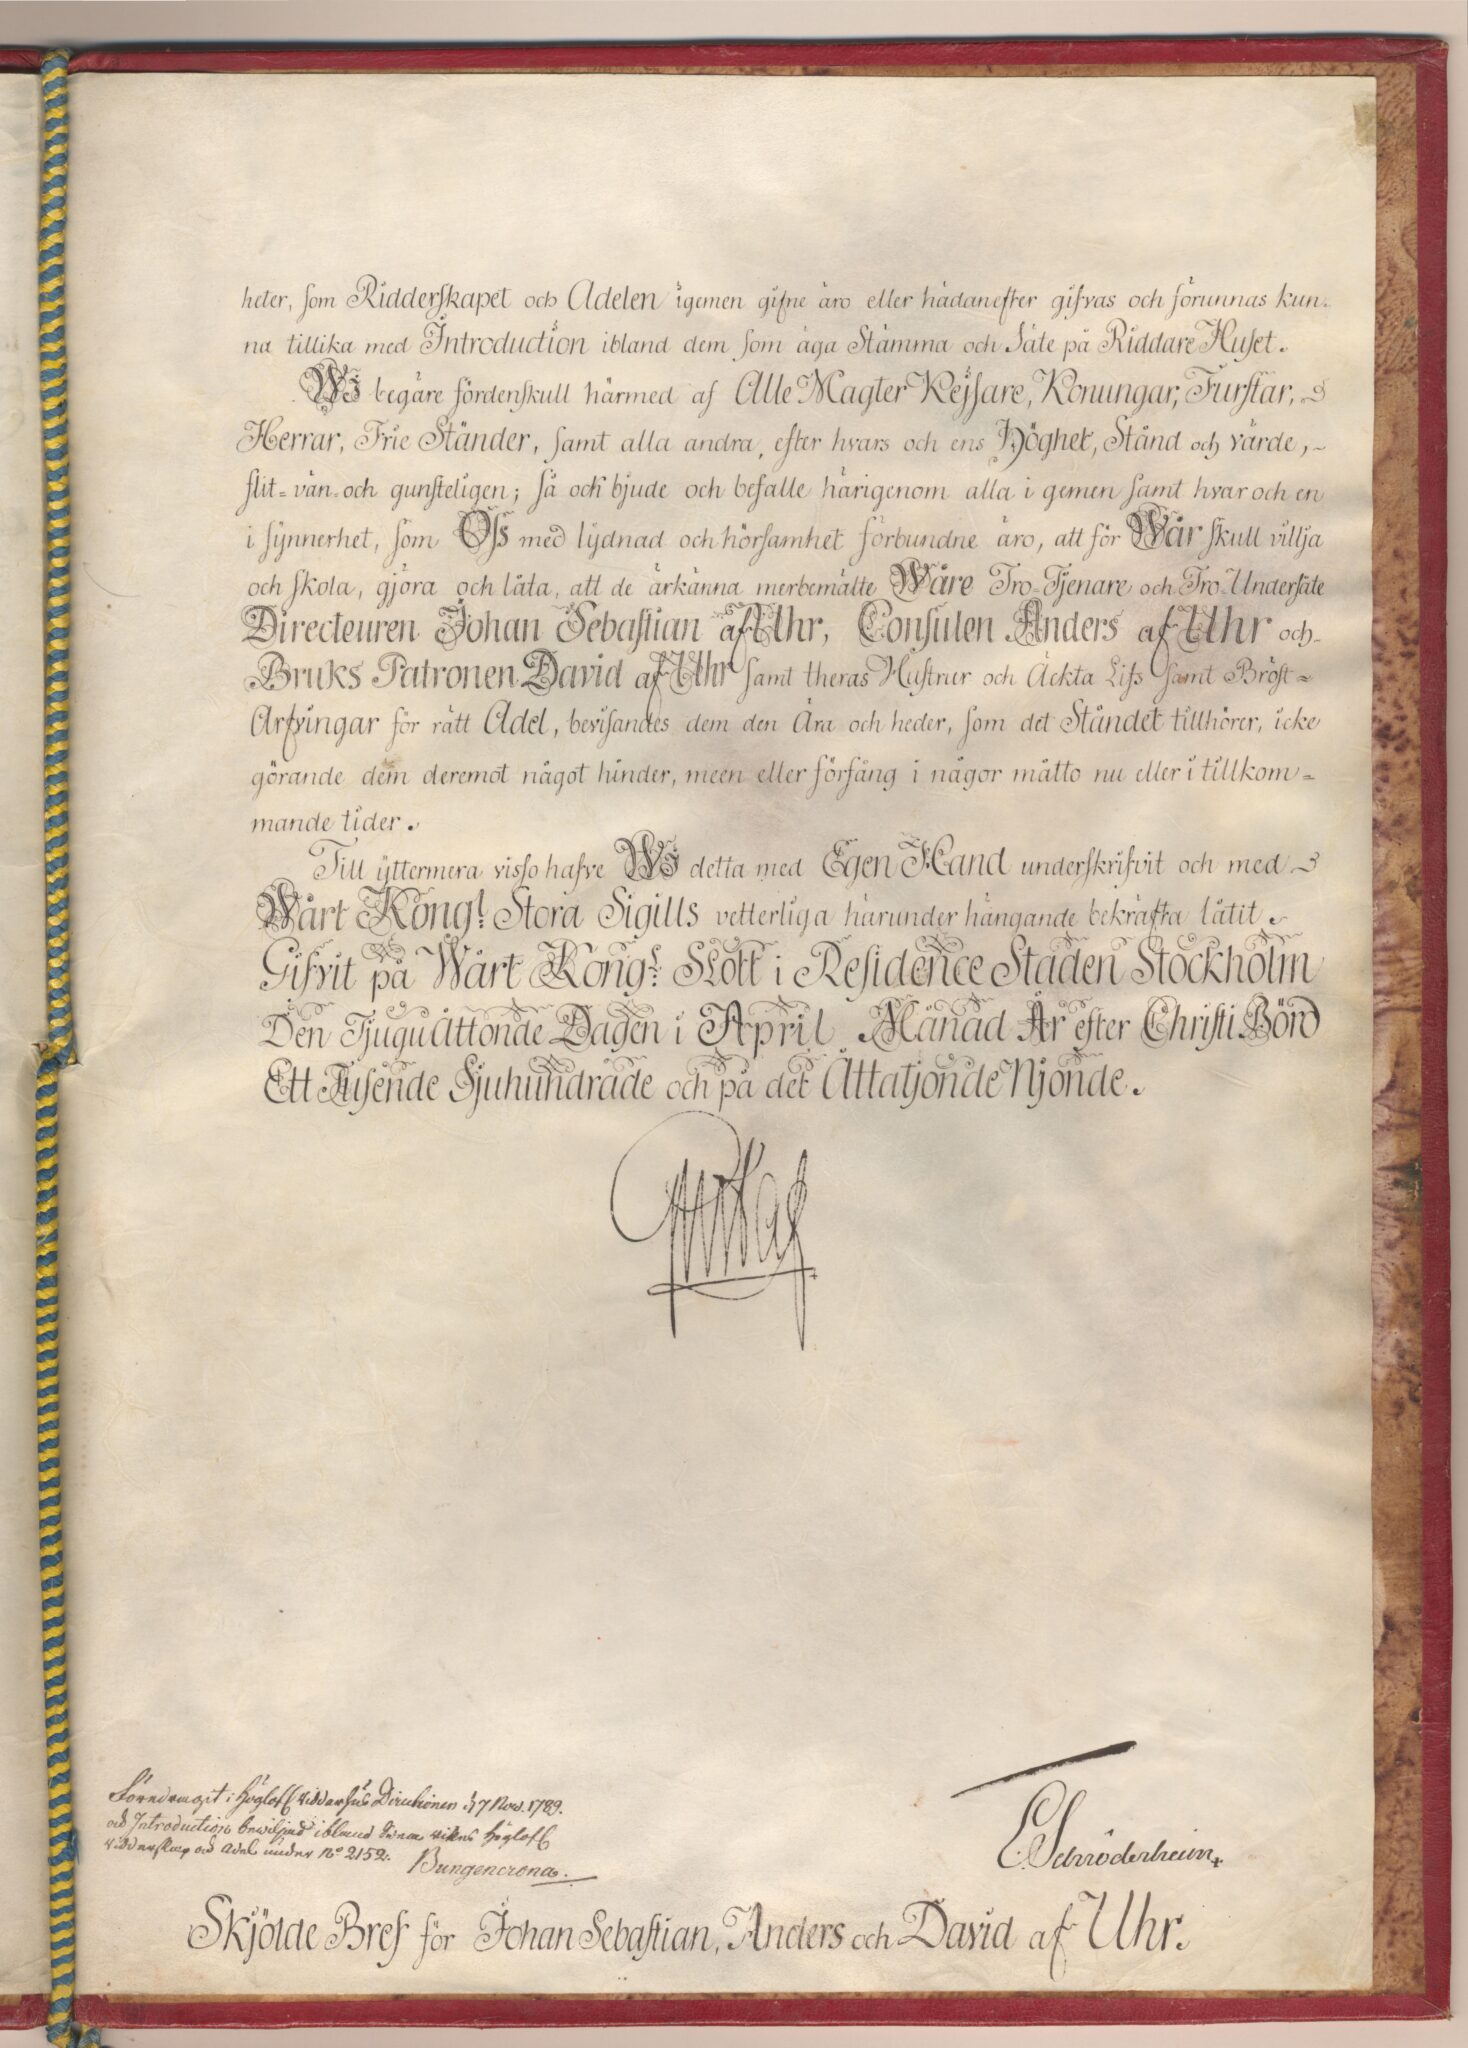 heter, som Ridderskapet och Adelen igemen gifne äro eller hädanefter gifvas och förunnas kun-
na tillika med Introduction ibland dem som äga Stämma och Säte på Riddare Huset.
Wi begäre fördenskull härmed af Alle Magter Kejsare, Konungar, Furstar,
Herrar, Frie Ständer, samt alla andra, efter hvars och ens Höghet, Stånd och värde,
flit-vän- och gunsteligen; så ock bjude och befalle härigenom alla i gemen samt hvar och en
i synnerhet, som Oss med lydnad och hörsamhet förbundne äro, att för Wår skull villja
och skola, gjöra och låta, att de ärkänna merbemälte Wåre Tro-Tjenare och Tro-Undersåte
Directeuren Johan Sebastian af Uhr, Consulen Anders af Uhr och
Bruks Patronen David af Uhr samt theras Hustrur och Äckta Lifs samt Bröst=
Arfvingar för rätt Adel, bevisandes dem den Ära och heder, som det Ståndet tillhörer, icke
görande dem deremot något hinder, meen eller förfång i någor måtto nu eller i tillkom=
mande tider.
Till yttermera visso hafve Wi detta med Egen Hand underskrifvit och med
Wårt Kongl. Stora Sigills vetterliga härunder hängande bekräfta låtit.
Gifvit på Wårt Kongl. Slott i Residence Staden Stockholm
Den Tjugu Åttonde Dagen i April Månad År efter Christi Börd
Ett Tusende Sjuhundrade och på det Åttatjonde Njonde.
Gustaf
Föredragit i Höglofl. Riddarhus Directionen d. 7 Nov. 1789.
och Introduction beviljad ibland Svea Rikes Höglofl.
Ridderskap och Adel under No 2152.
Bungencrona.
E Schröderheim
Skjölde Bref för Johan Sebastian, Anders och David af Uhr.